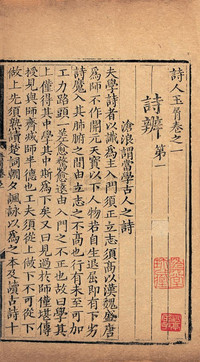 詩人玉屑卷之一
詩辨 第一
滄浪謂當學古人之詩
夫學詩者以識爲主入門須正立志須高以漢魏盛唐
爲師不作開元天寶以下人物若自生退屈即有下劣
詩魔入其肺腑之間由立志之不高也行有未至可加
工力路頭一差愈騖愈遠由入門之不正也故曰學其
上僅得其中學其中斯爲下矣又曰見過於師僅堪傳
授見與師齊減師半德也工夫須從上做下不可從下
做上先須熟讀楚詞朝夕諷詠以爲之本及讀古詩十